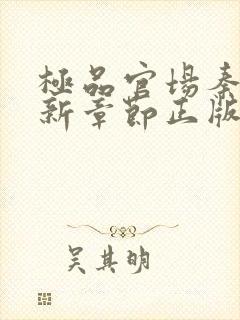 極品官場秦
新章節正版
吴其明